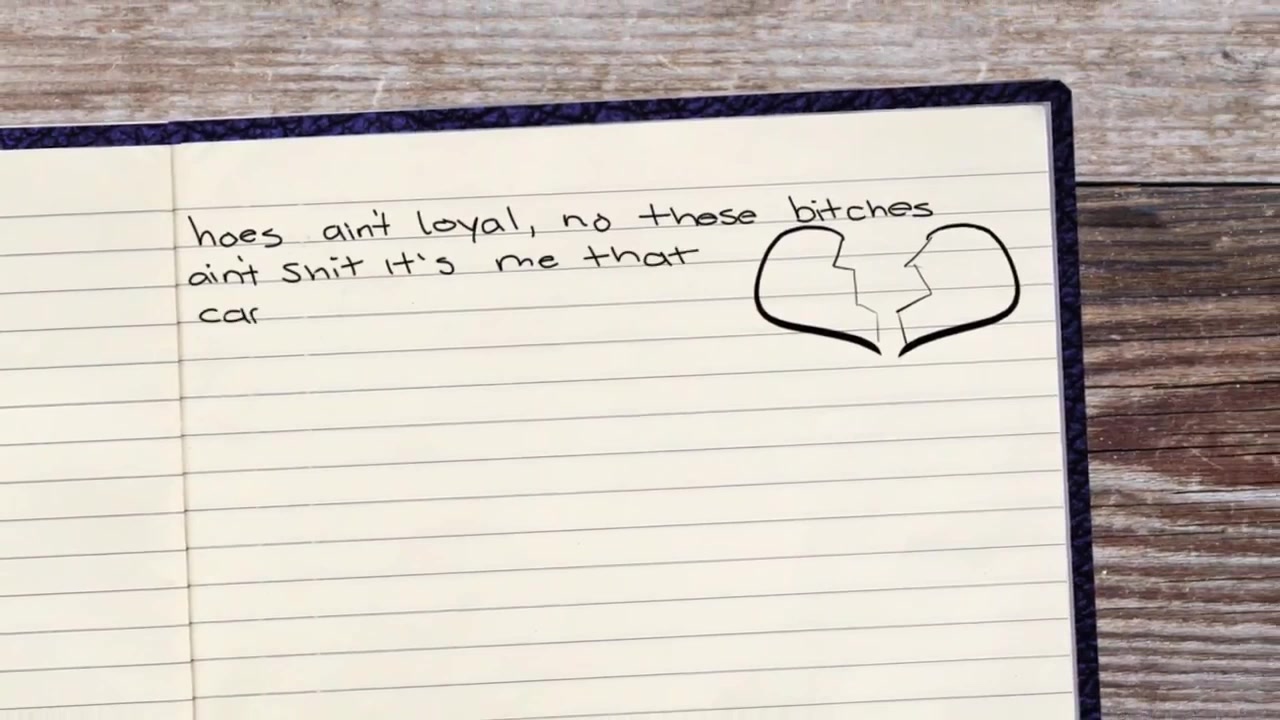 hoes ain't loyal, no these bitches
ain't shit it's me that
car